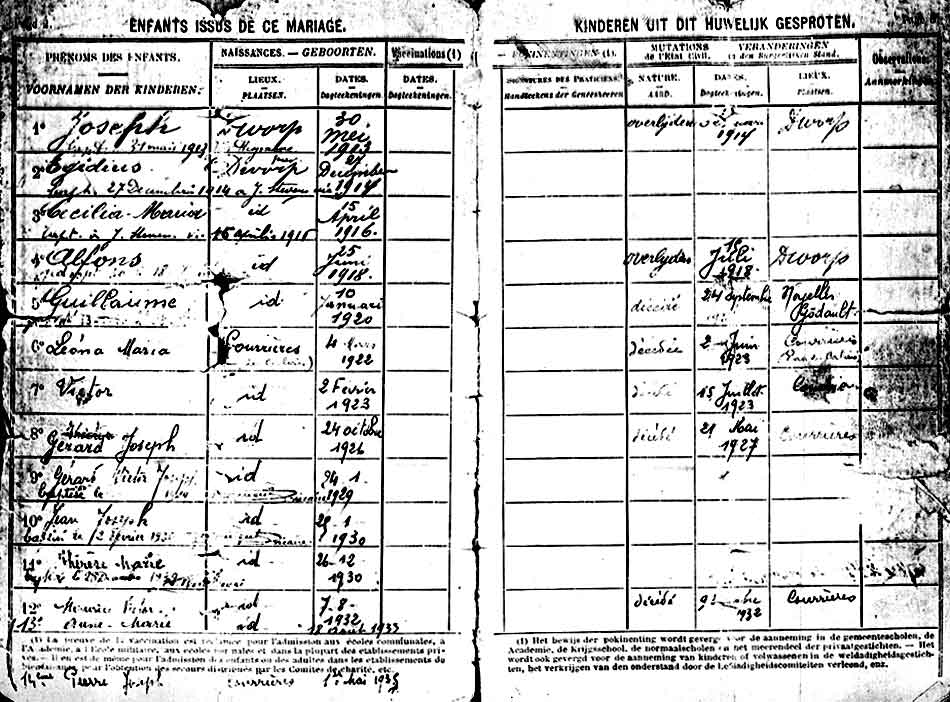 ENFANTS ISSUS DE CE MARIAGE.
PRÉNOMS DES ENFANTS.
VOORNAMEN DER KINDEREN:
NAISSANCES. — GEBOORTEN.
LIEUX.
PLAATSEN.
DATES.
Dagteekeningen.
Vaccinations (1)
DATES.
Dagteekeningen.
1° Joseph Dworp 30 mei 1913
2° Egidius Dworp 27 December 1914
27 Decembris 1914
3° Cecilia-Maria id 15 April 1916.
4° Alfons id 25 Juni 1918.
5° Guillaume id 10 Januari 1920
6° Léona Maria Courrières 4 Mars 1922
7° Victor id 2 Fevrier 1923
8° Gérard Joseph id 24 octobre 1926
9° Gérard Victor Joseph id 24 1 1929
baptisé le
10° Jean Joseph id 28 - 1 1930
11° Thérèse Marie id 26-12 1930
12° Maurice id 7-8- 1932
13° Anne-Marie id 18 août 1933
(1) La preuve de la vaccination est exigée pour l'admission aux écoles communales, à
l'Académie, à l'École militaire, aux écoles normales et dans la plupart des établissements pri-
vés. — Il en est de même pour l'admission des enfants ou des adultes dans les établissements de
bienfaisance, pour l'obtention de secours distribués par les Comités de charité, etc.
14ème Pierre Joseph Courrières 1er Mai 1935
KINDEREN UIT DIT HUWELIJK GESPROTEN.
POKINENTINGEN (1).
SIGNATURES DES PRATICIENS
Handteekens der Geneesheeren
MUTATIONS de l'Etat Civil.
VERANDERINGEN in den Burgerlijken Stand.
NATURE.
AARD.
DATES
Dagteekeningen.
LIEUX.
Plaatsen.
Observations
Aanmerkingen
overlyden 1914 Dworp
overlyden 15 Juli 1918. Dworp
décédé 24 Septembre Noyelles Godault
décédée 2 Juin 1923 Courrières
décédé 15 Juillet 1923
décédé 21 Mai 1927 Courrières
décédé 1932 Courrières
(1) Het bewijs der pokinenting wordt gevergd voor de aanneming in de gemeentescholen, de
Academie, de Krijgsschool, de normaalscholen en in het meerendeel der privaatgestichten. — Het
wordt ook gevergd voor de aanneming van kinderen of volwassenen in de weldadigheidsgestich-
ten, het verkrijgen van den onderstand door de Weldadigheidscomiteiten verleend, enz.